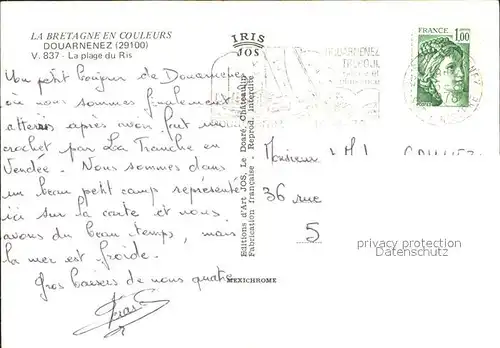 LA BRETAGNE EN COULEURS
DOUARNENEZ (29100)
V. 837 - La plage du Ris
IRIS
JOS
FRANCE
1,00
DOUARNENEZ
Un petit bonjour de Douarnenez
où nous sommes finalement
atterris après avoir fait un
crochet par La Tranche en
Vendée. Nous sommes dans
un beau petit camp représenté
ici sur la carte et nous
avons du beau temps, mais
la mer est froide.
Gros baisers de nous quatre
Editions d'Art JOS, Le Doaré, Châteaulin
Fabrication française. Reprod. interdite
MEXICHROME
Monsieur
36 rue
5
privacy protection
Datenschutz